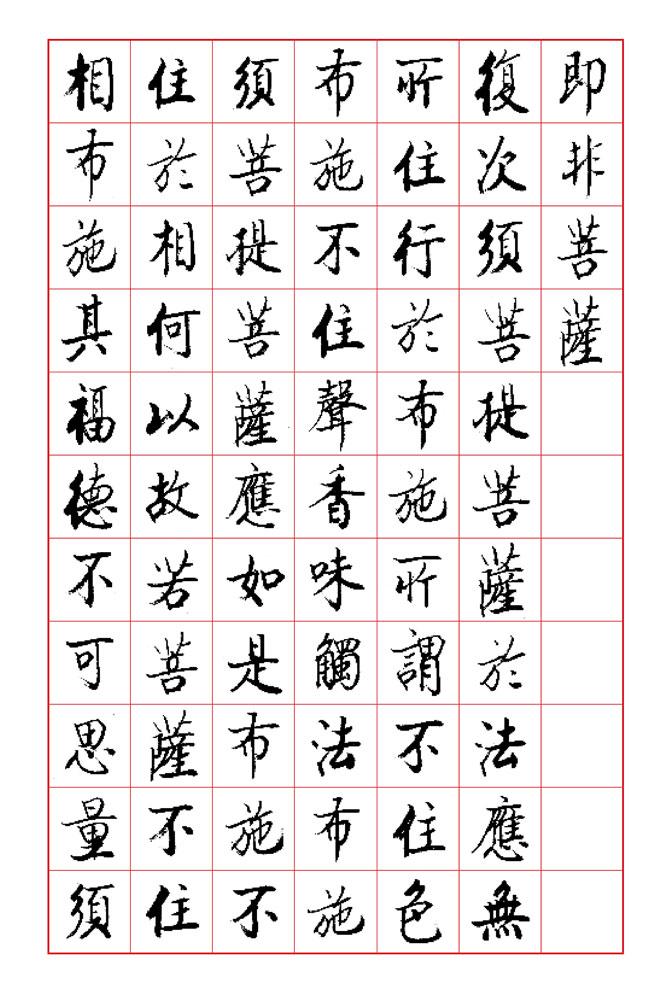 即非菩薩
復次須菩提菩薩於法應無
所住行於布施所謂不住色
布施不住聲香味觸法布施
須菩提菩薩應如是布施不
住於相何以故若菩薩不住
相布施其福德不可思量須